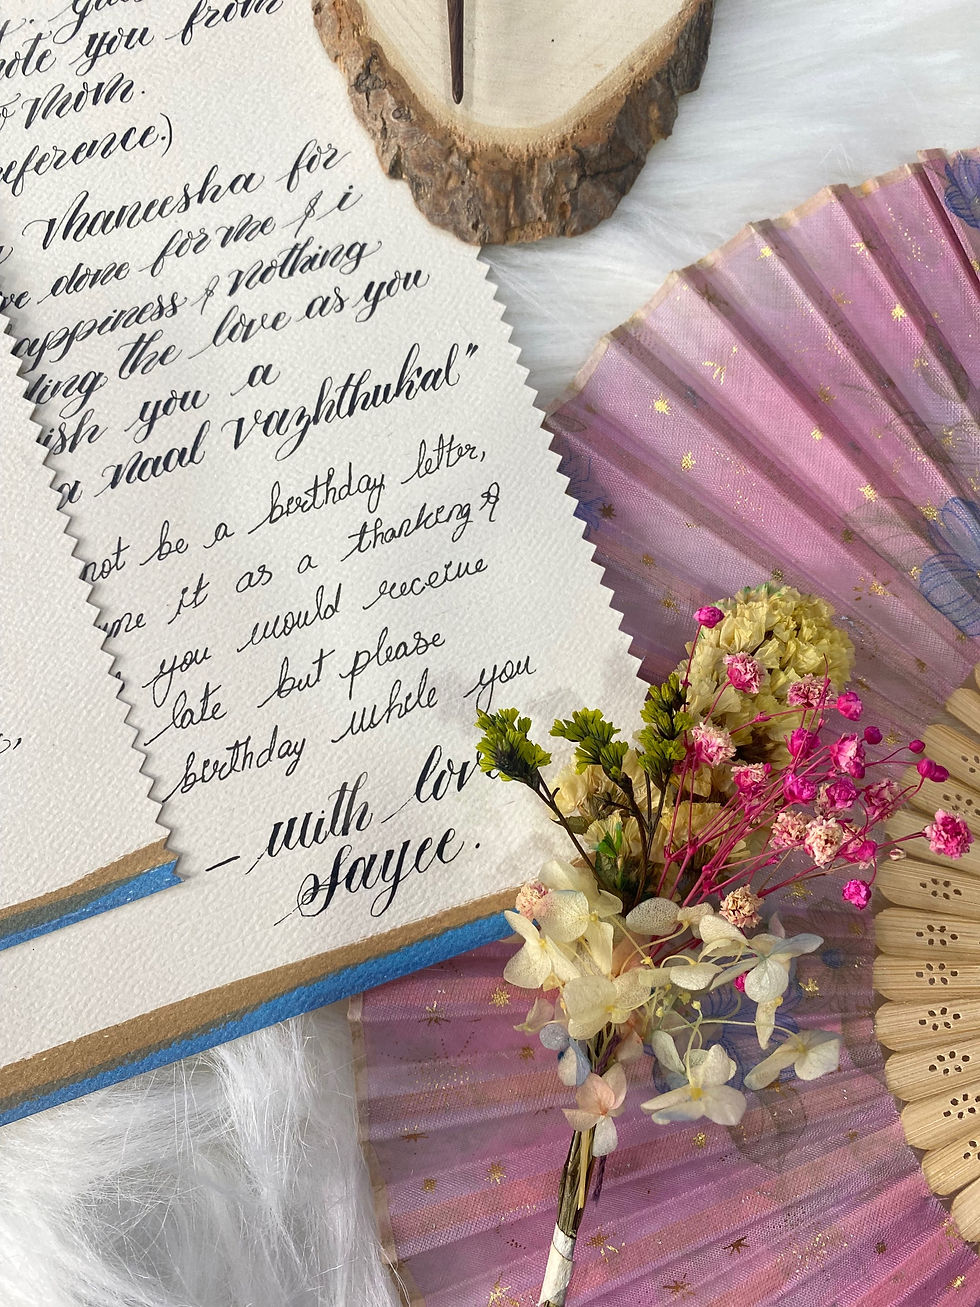 you from
mom.
Maneesha for
done for me & i
& nothing
the love as you
you a
Naal Vazhthukal"
not be a birthday letter,
me it as a thanking &
you would receive
late but please
birthday while you
- with love
Sayee.